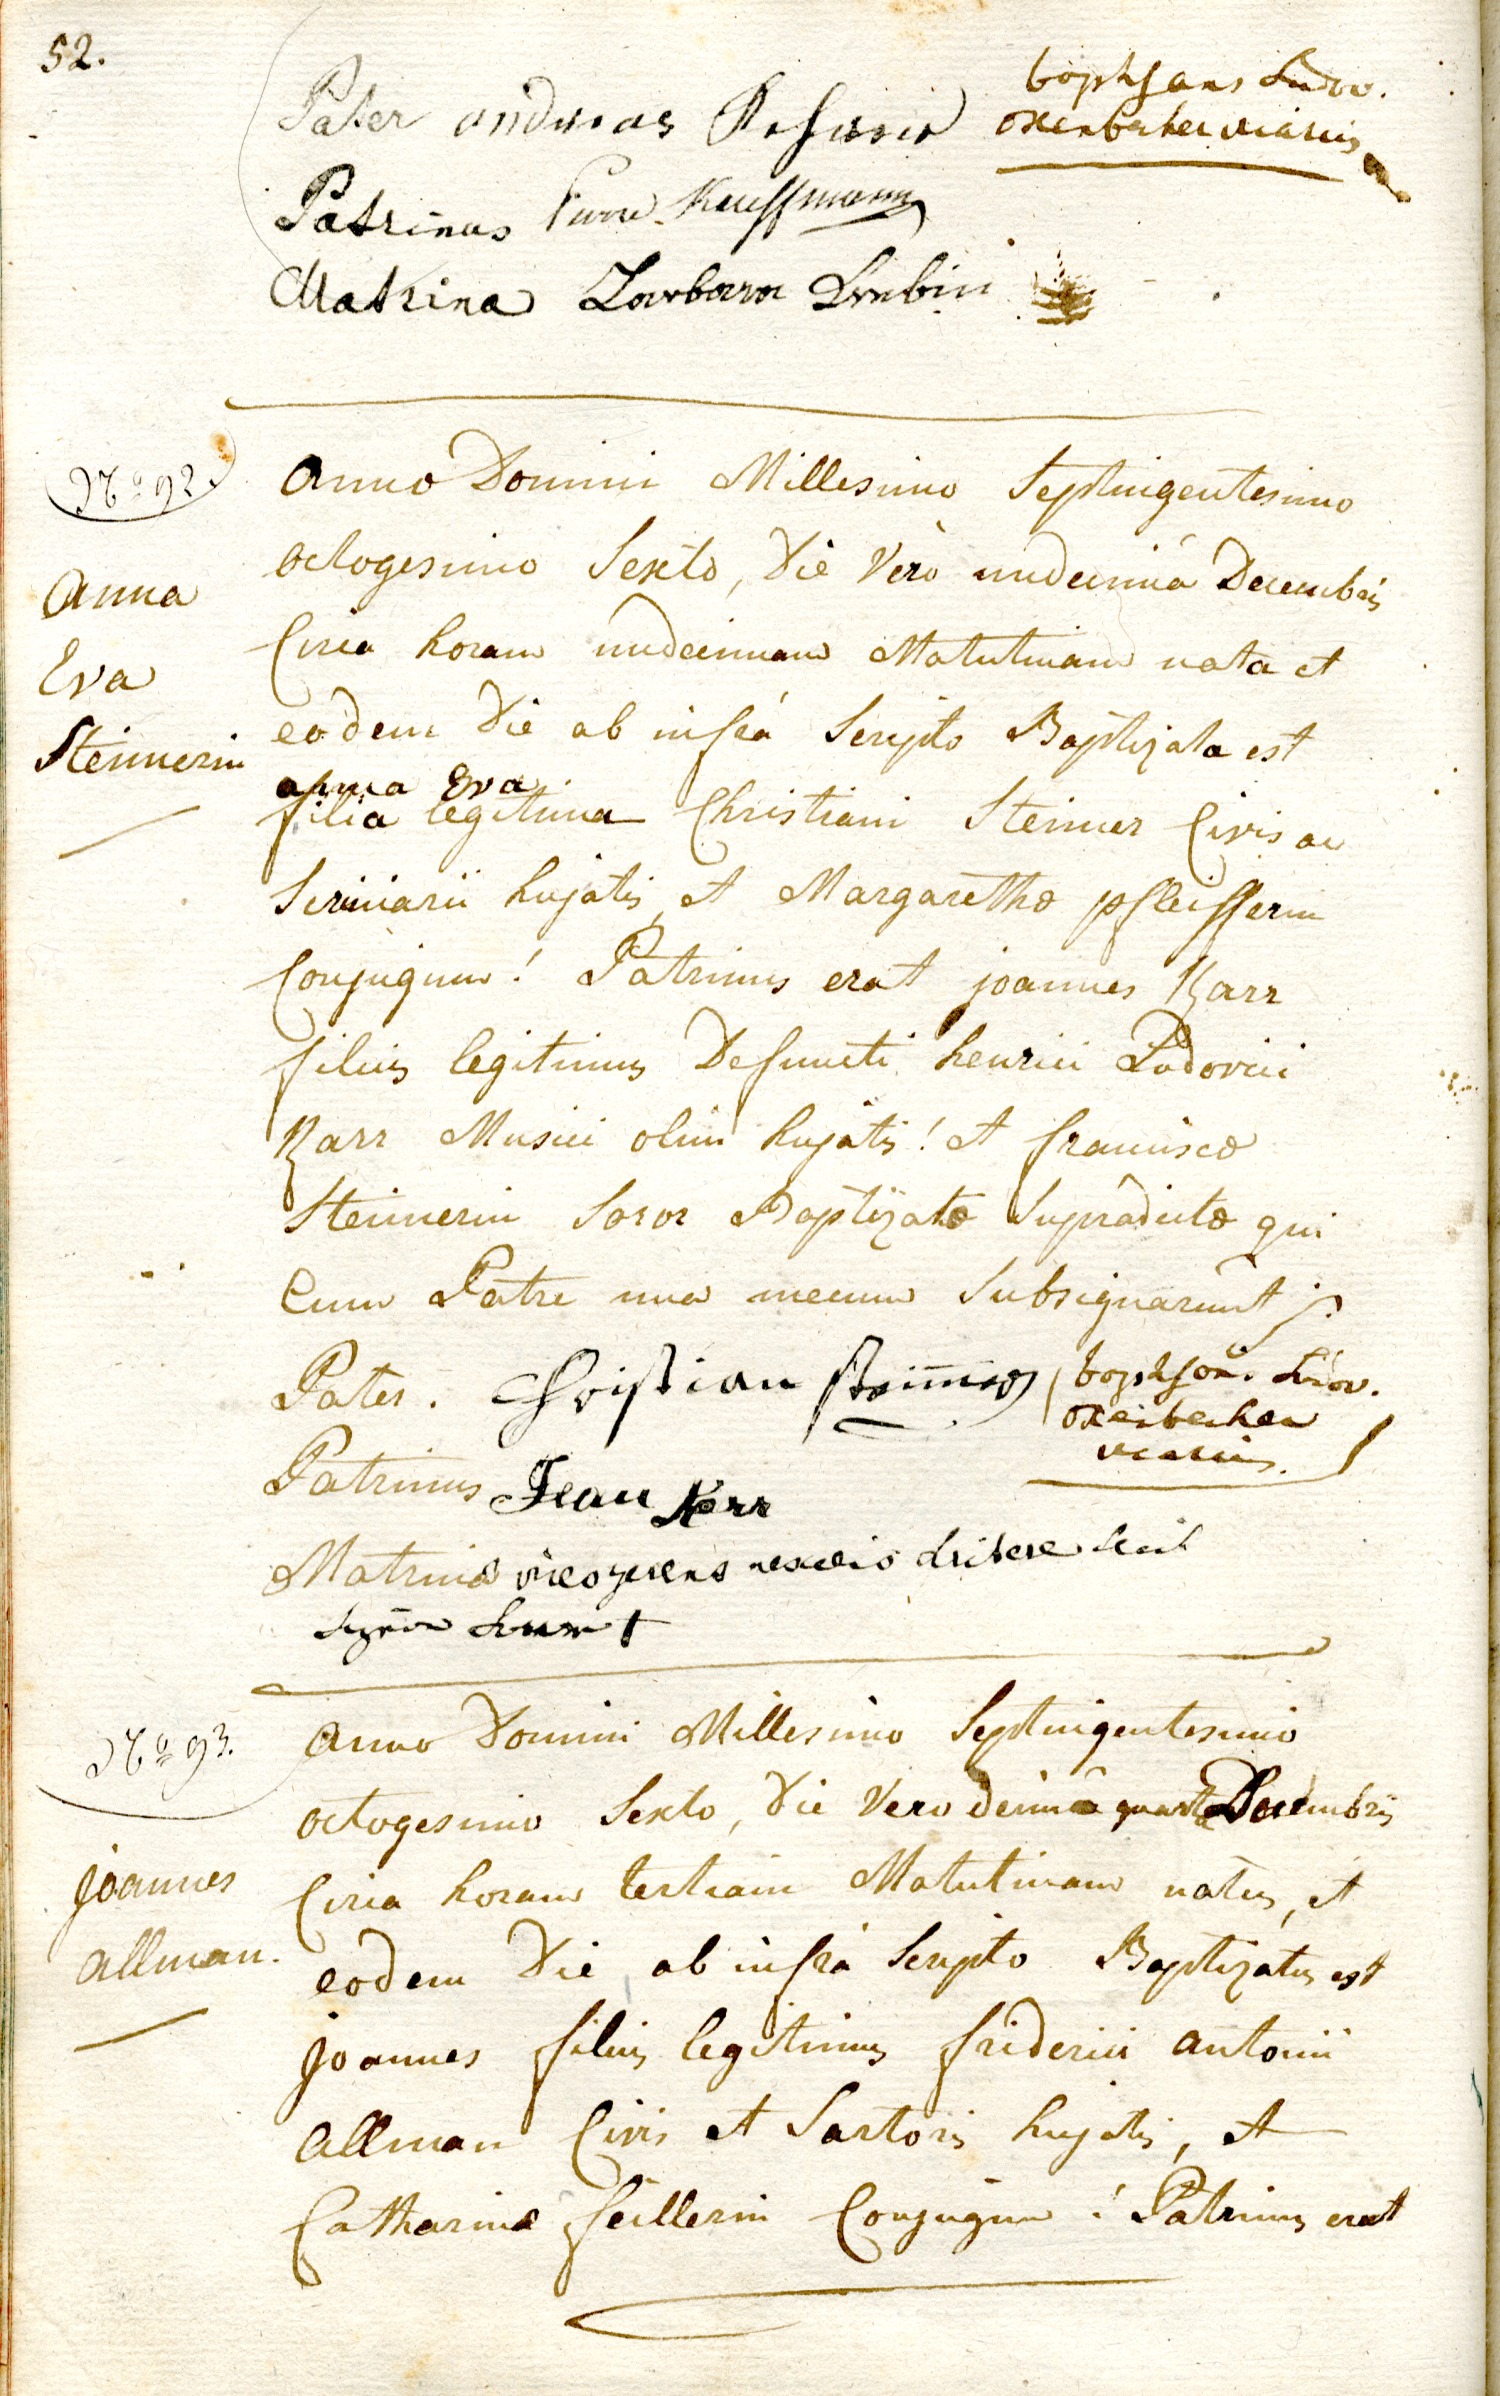 52.
Pater andreas
Patrinus Pierre Kauffmann
Matrina Barbara
Ludov.
Nº 92.
Anna
Eva
Steinnerin
Anno Domini Millesimo Septuigentesimo
octogesimo Sexto, Die Verò undecimâ Decembris
Circa horam undecimam Matutinam nata et
eodem Die ab infrà Scripto Baptizata est
anna Eva
filia legitima Christiani Steinner Civis ac
Scriniarii hujatis, et Margarethæ pfleifferin
Conjugum! Patrinus erat joannes Karr
filius legitimus Defuncti henrici Ludovici
Karr Musici olim hujatis! et francisca
Steinnerin Soror Baptizatæ Supradictæ qui
Cum Patre una mecum Subsignarunt
Pater. Christian Steinner
Ludov.
Patrinus Jean Kerr
Matrina
Nº 93.
Joannes
allman.
Anno Domini Millesimo Septuigentesimo
octogesimo Sexto, Die Vero decimâ quartâ Decembris
Circa horam tertiam Matutinam natus, et
eodem Die ab infrà Scripto Baptizatus est
Joannes filius legitimus friderici antonii
allman Civis et Sartoris hujatis, et
Catharinæ feillerin Conjugum! Patrinus erat